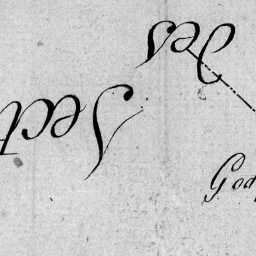 Des
Sect
God